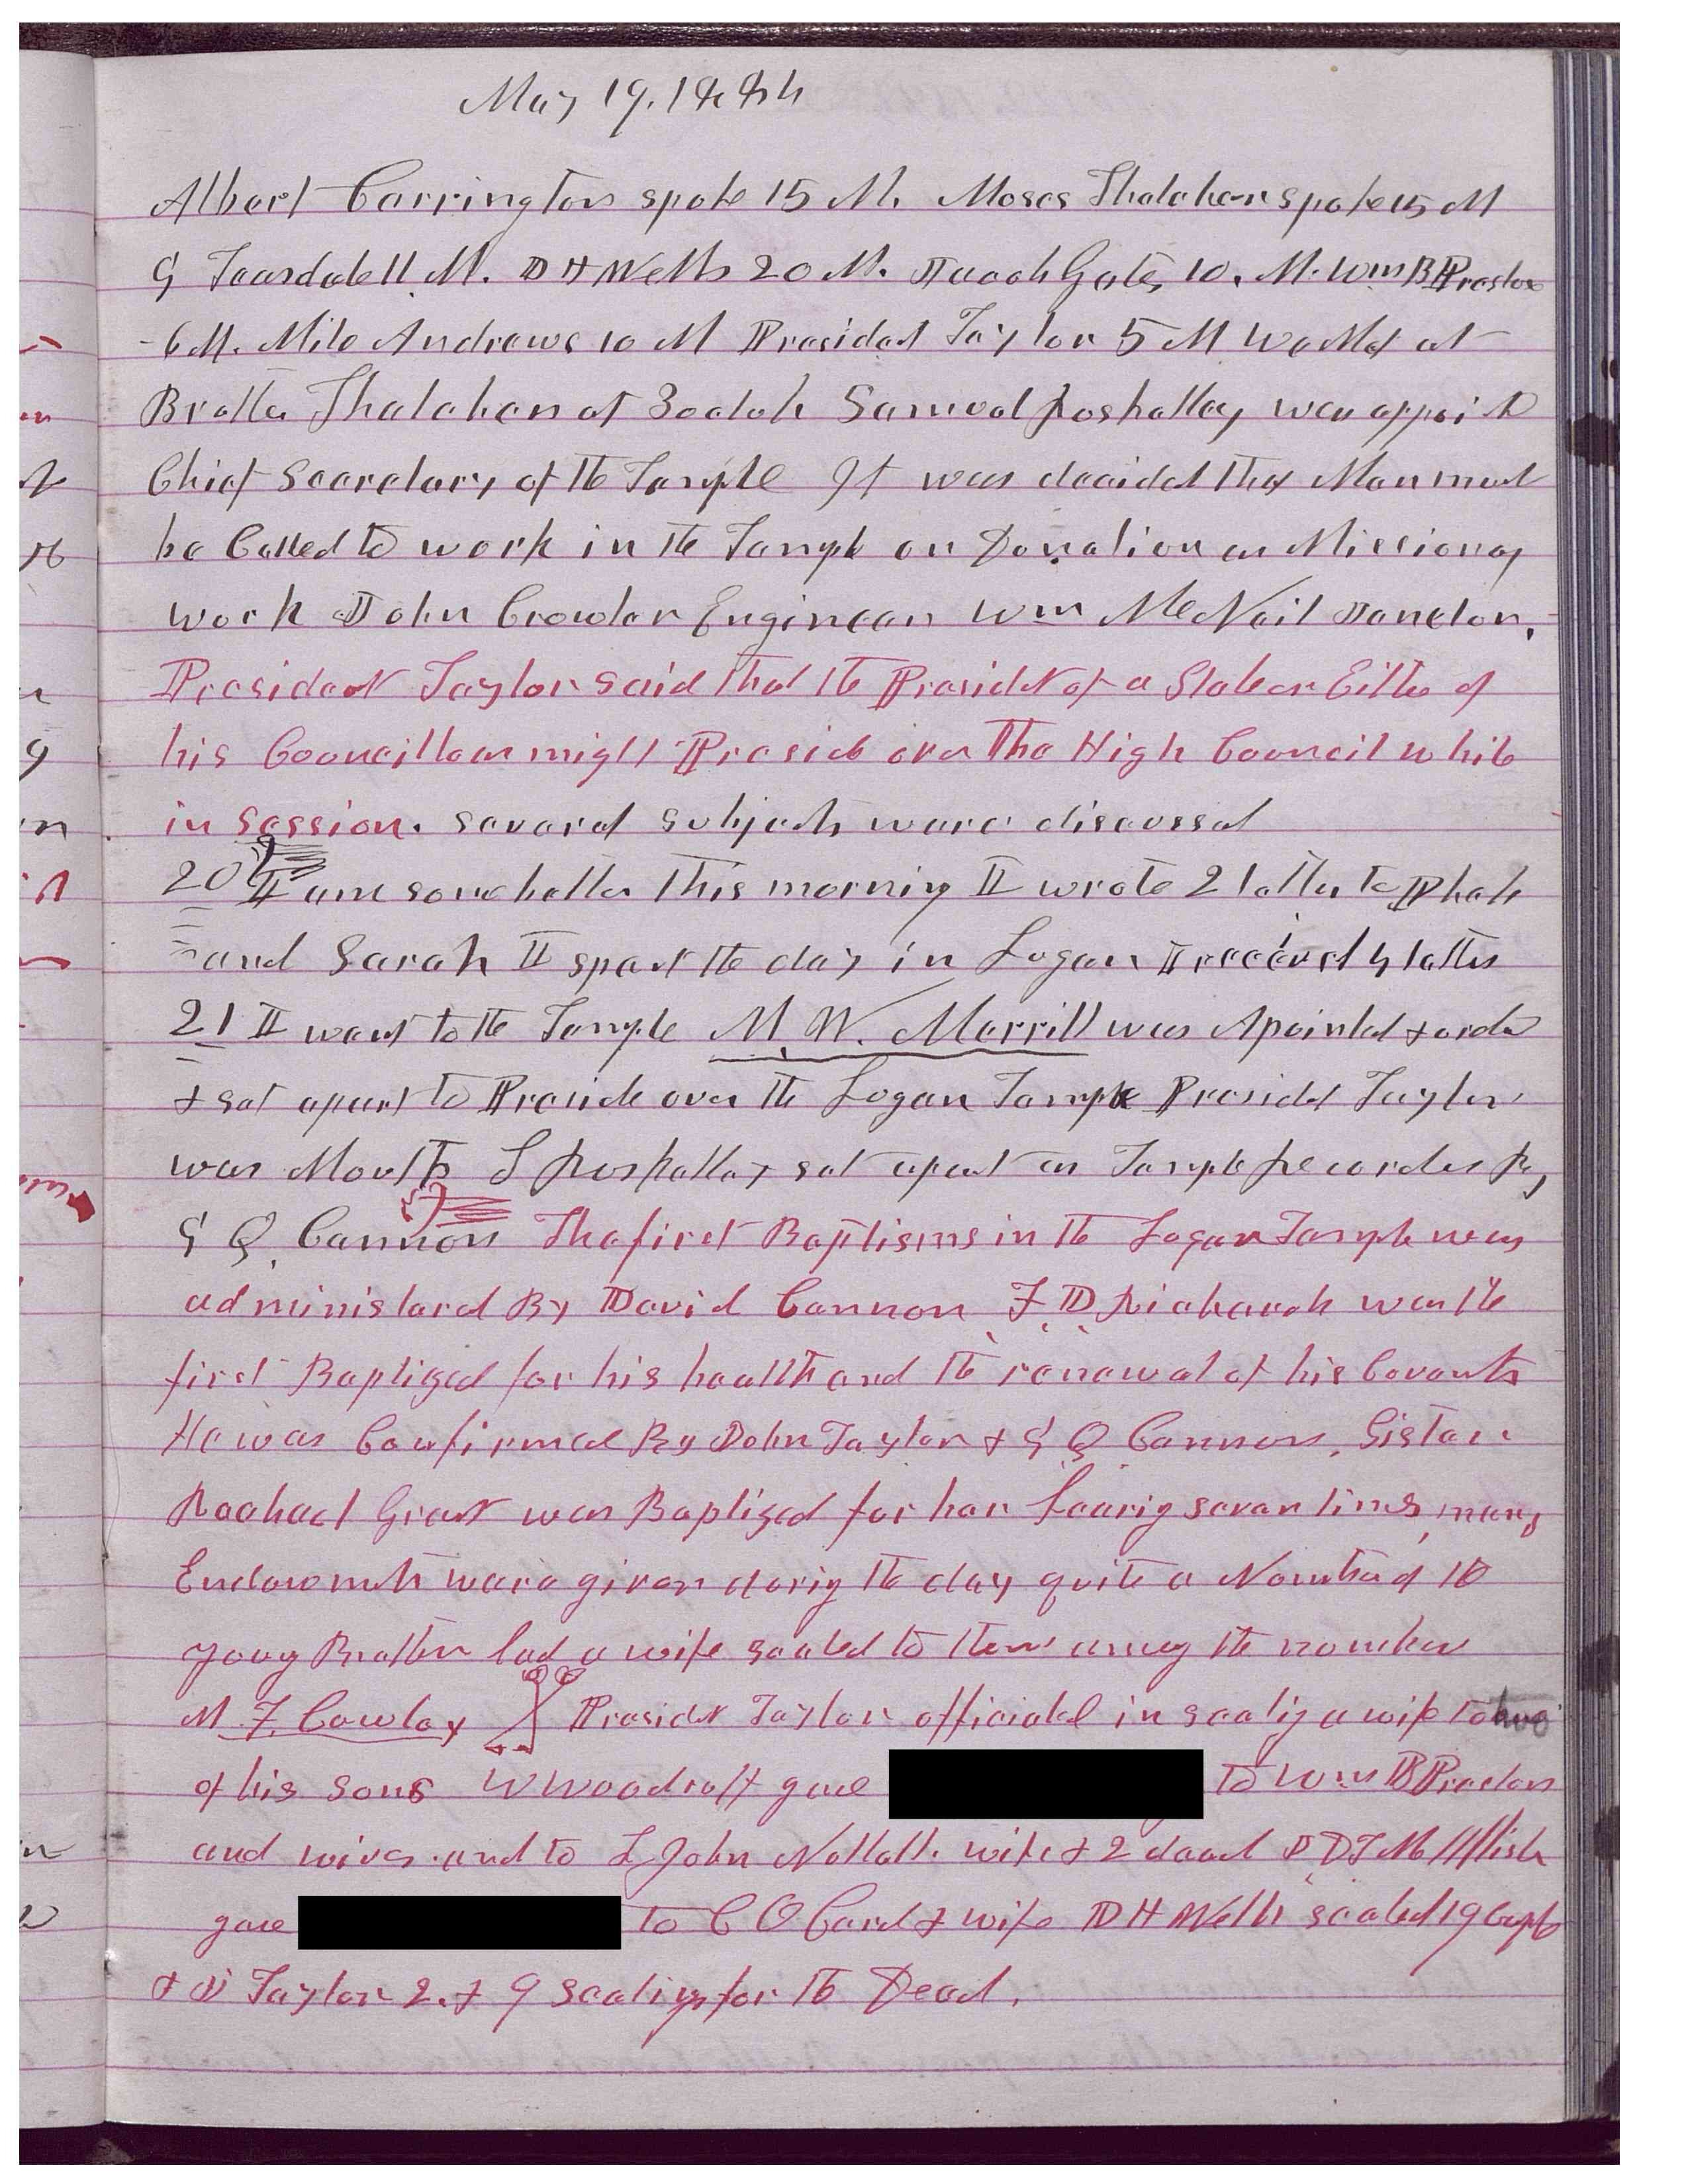 May 19. 1884
Albert Carrington spoke 15 M. Moses Thatcher spoke 15 M
G Teasdale 11 M. D H Wells 20 M. Jacob Gates 10. M. Wm B Preston
6 M. Milo Andrews 10 M President Taylor 5 M We Met at
Brother Thatcher at 3 oclok Samuel Roskelley was appoint
Chief Secretary of the Temple It was decided that Men must
be Called to work in the Temple on Donation or Missionary
work John Crowder Engineer Wm McNeil Janetor.
President Taylor said that the President of a Stake or Either of
his Councillor might Preside over the High Council while
in Session. several subjects were discussed
20 I am some better this morning I wrote 2 letters to Phebe
and Sarah I spent the day in Logan I received 4 letters
21 I went to the Temple M. W. Merrill was Apointed & orda
& set apart to Preside over the Logan Temple President Taylor
was Mouth S Roskelley set apart as Temple Recorder By
G Q Cannon The first Baptisms in the Logan Temple was
administered By David Cannon F D Richards was the
first Baptized for his health and the renewal of his Covants
He was Confirmed By John Taylor & G Q Cannon. Sister
Rachael Grant was Baptized for her hearing seven times, many
Endowments were given during the day quite a Number of the
young Brethren had a wife sealed to them among the number
M. F. Cowley President Taylor officiated in sealing a wife to two
of his sons W Woodruff gave to Wm B Preston
and wives and to L John Nuttall wife & 2 dead J D T McAllister
gave to C O Card & wife D H Wells sealed 19 Cupls
& J Taylor 2. & 9 Sealings for the Dead.